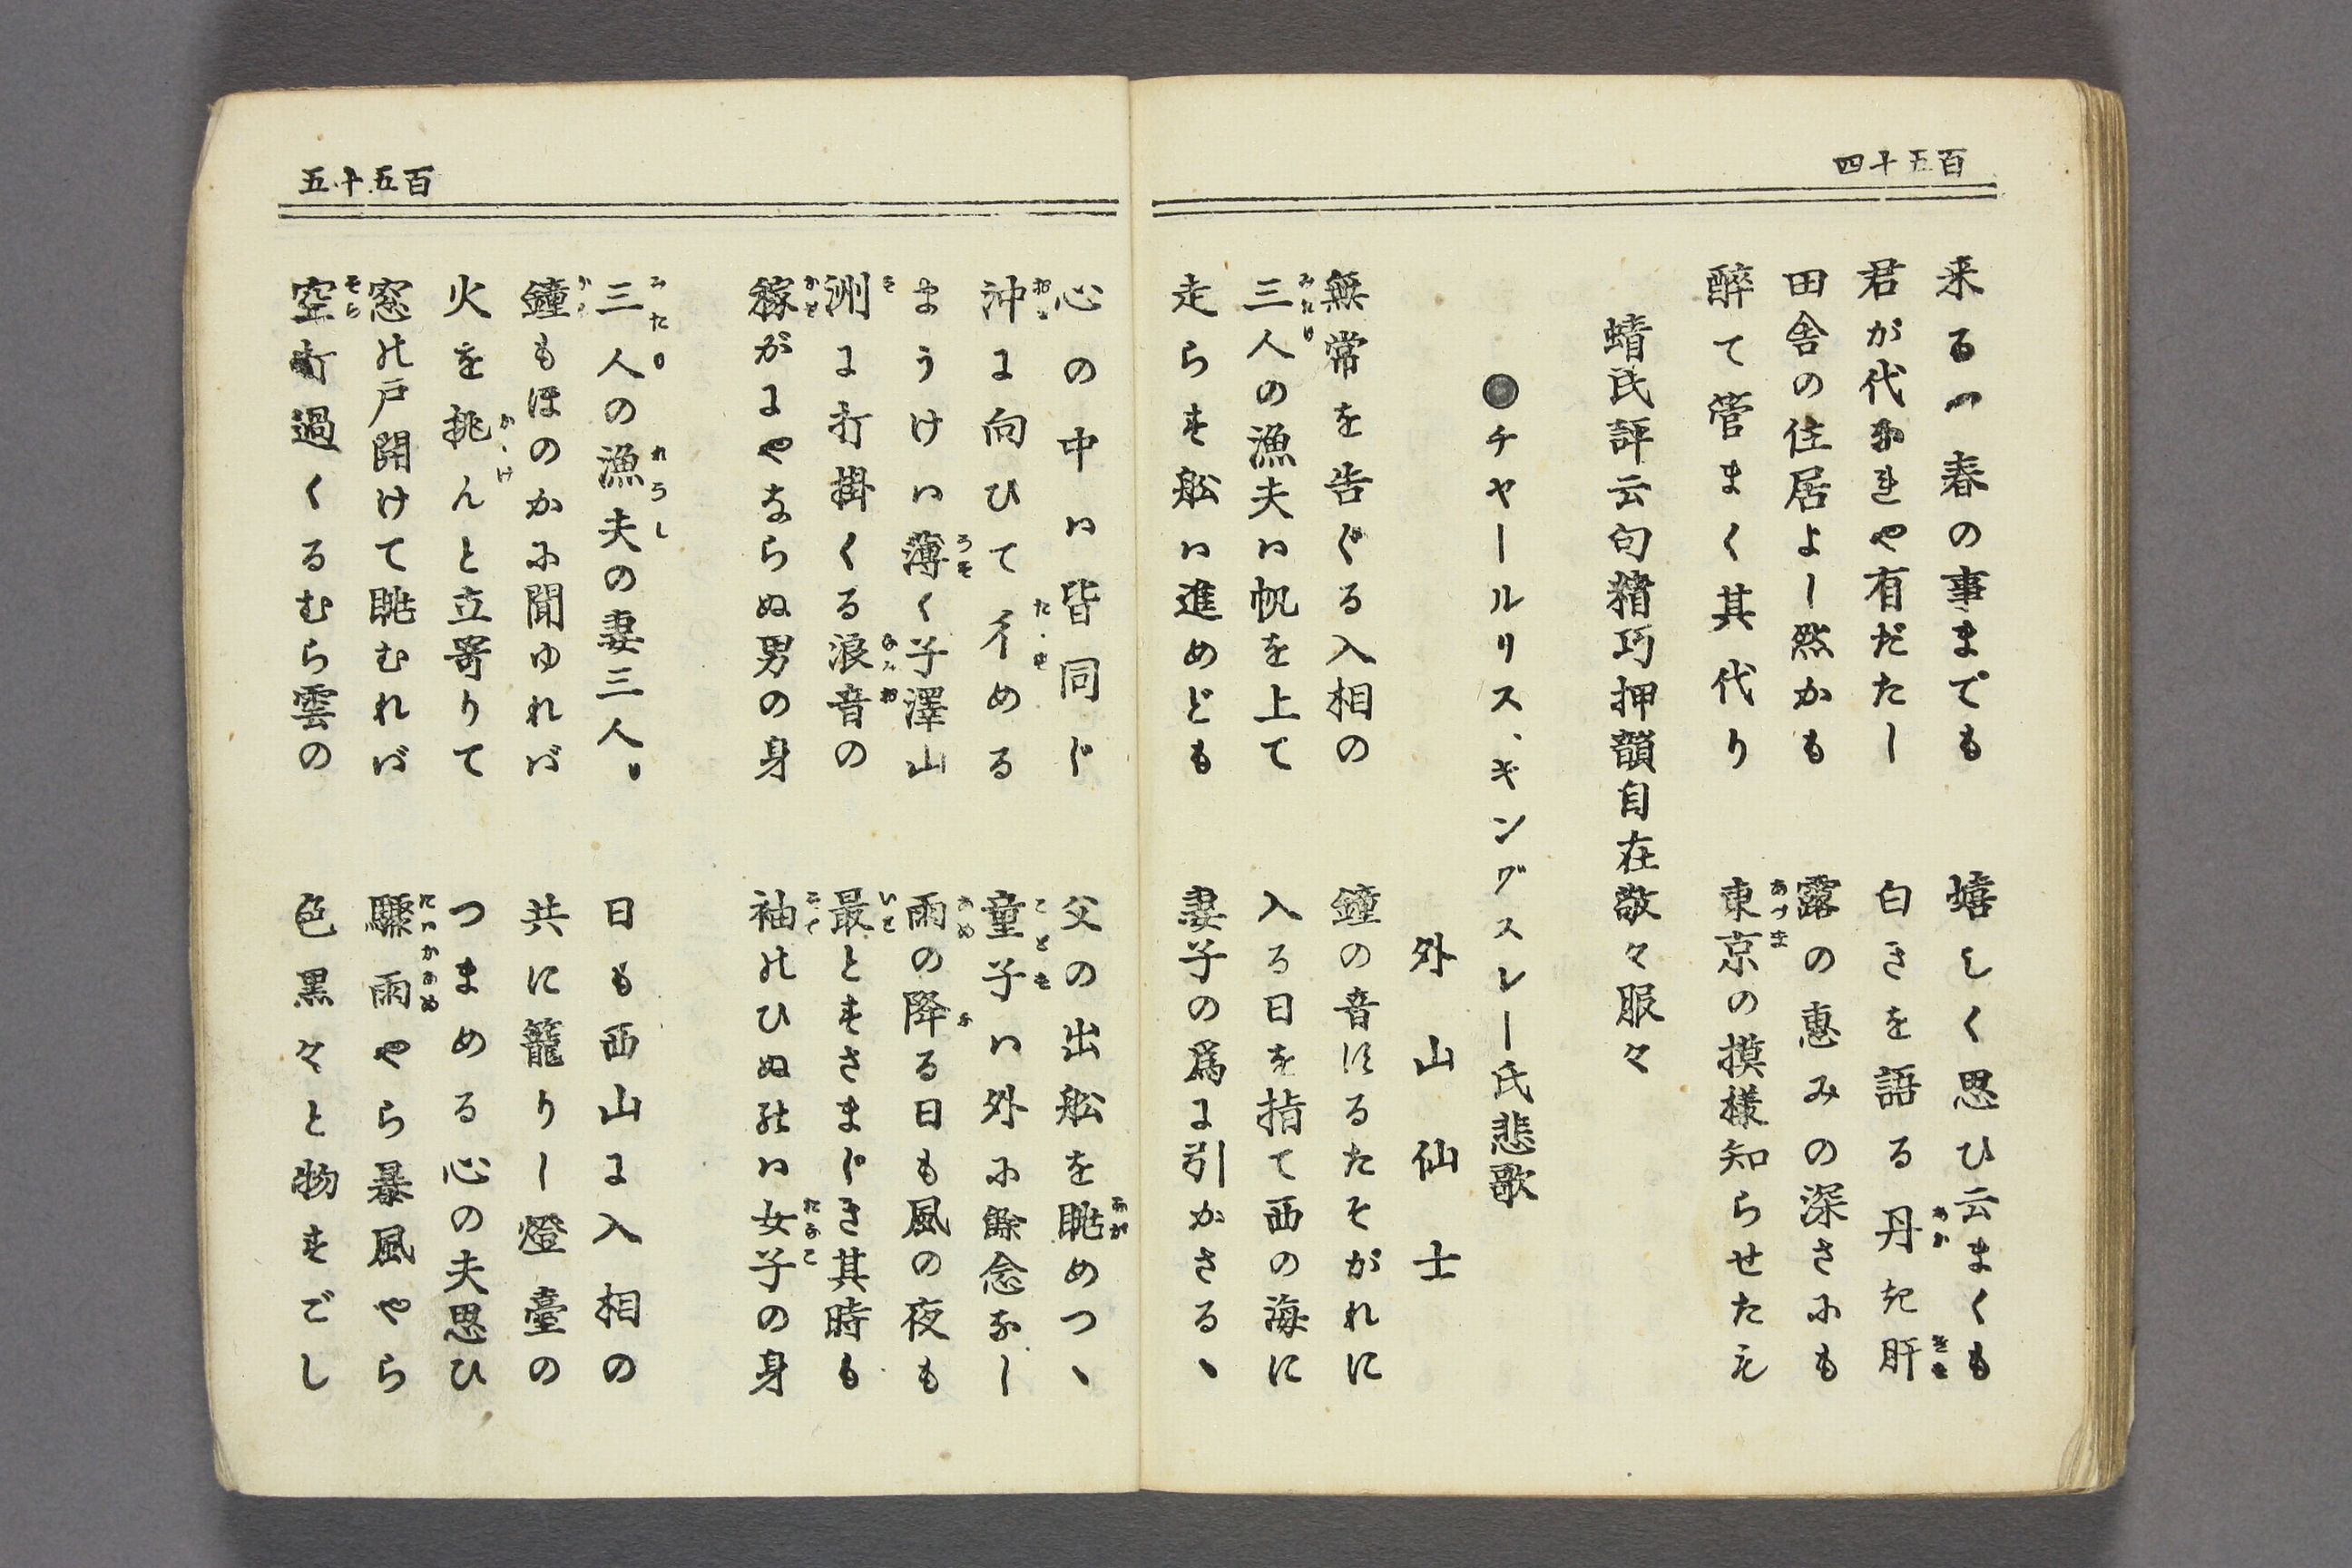 百五十四
来るつ春の事までも 嬉しく思ひ云まくも
君が代なれや有だたし 白きを語る丹た肝
田舎の住居よし然かも 露の惠みの深さにも
醉て管まく其代り 東京の摸樣知らせたえ
蜻氏評云句猪巧押韻自在敬々服々
●チャールリス、ギングスレー氏悲歌
外山仙士
無常を告ぐる入相の 鐘の音にるたそがれに
三人の漁夫ハ帆を上て 入る日を指て西の海に
走らす舩ハ進めども 妻子の爲に引かさるゝ
百五十五
心の中ハ皆同じ 父の出舩を眺めつゝ
沖に向ひて彳める 童子ハ外に餘念なし
まうけハ薄く子澤山 雨の降る日も風の夜も
洲に打掛くる浪音の 最とすさまじき其時も
稼がにやならぬ男の身 袖のひぬのハ女子の身
三人の漁夫の妻三人。 日も西山に入相の
鐘もほのかに聞ゆれバ 共に籠りし燈臺の
火を挑んと立寄りて つまめる心の夫思ひ
窓の戸開けて眺むれバ 驟雨やら暴風やら
空打過くるむら雲の 色黒々と物すごし